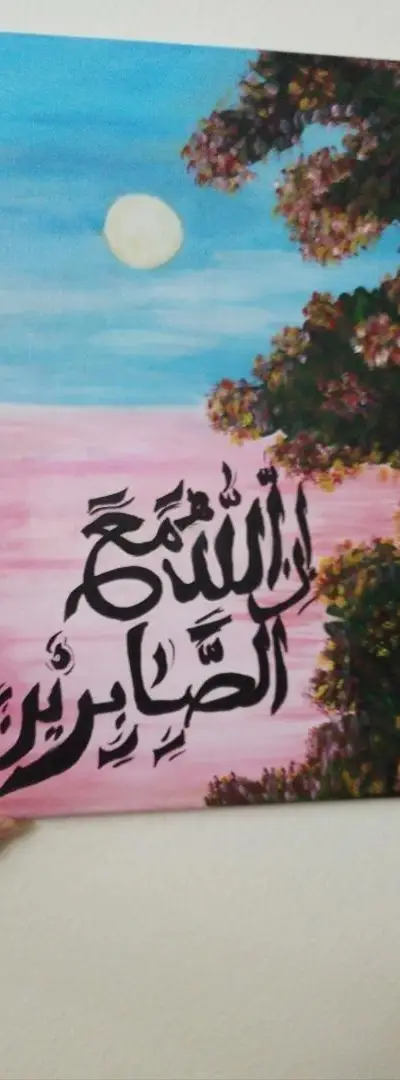 إن اللّٰهُ مَعَ
الصَّابِرِيْن